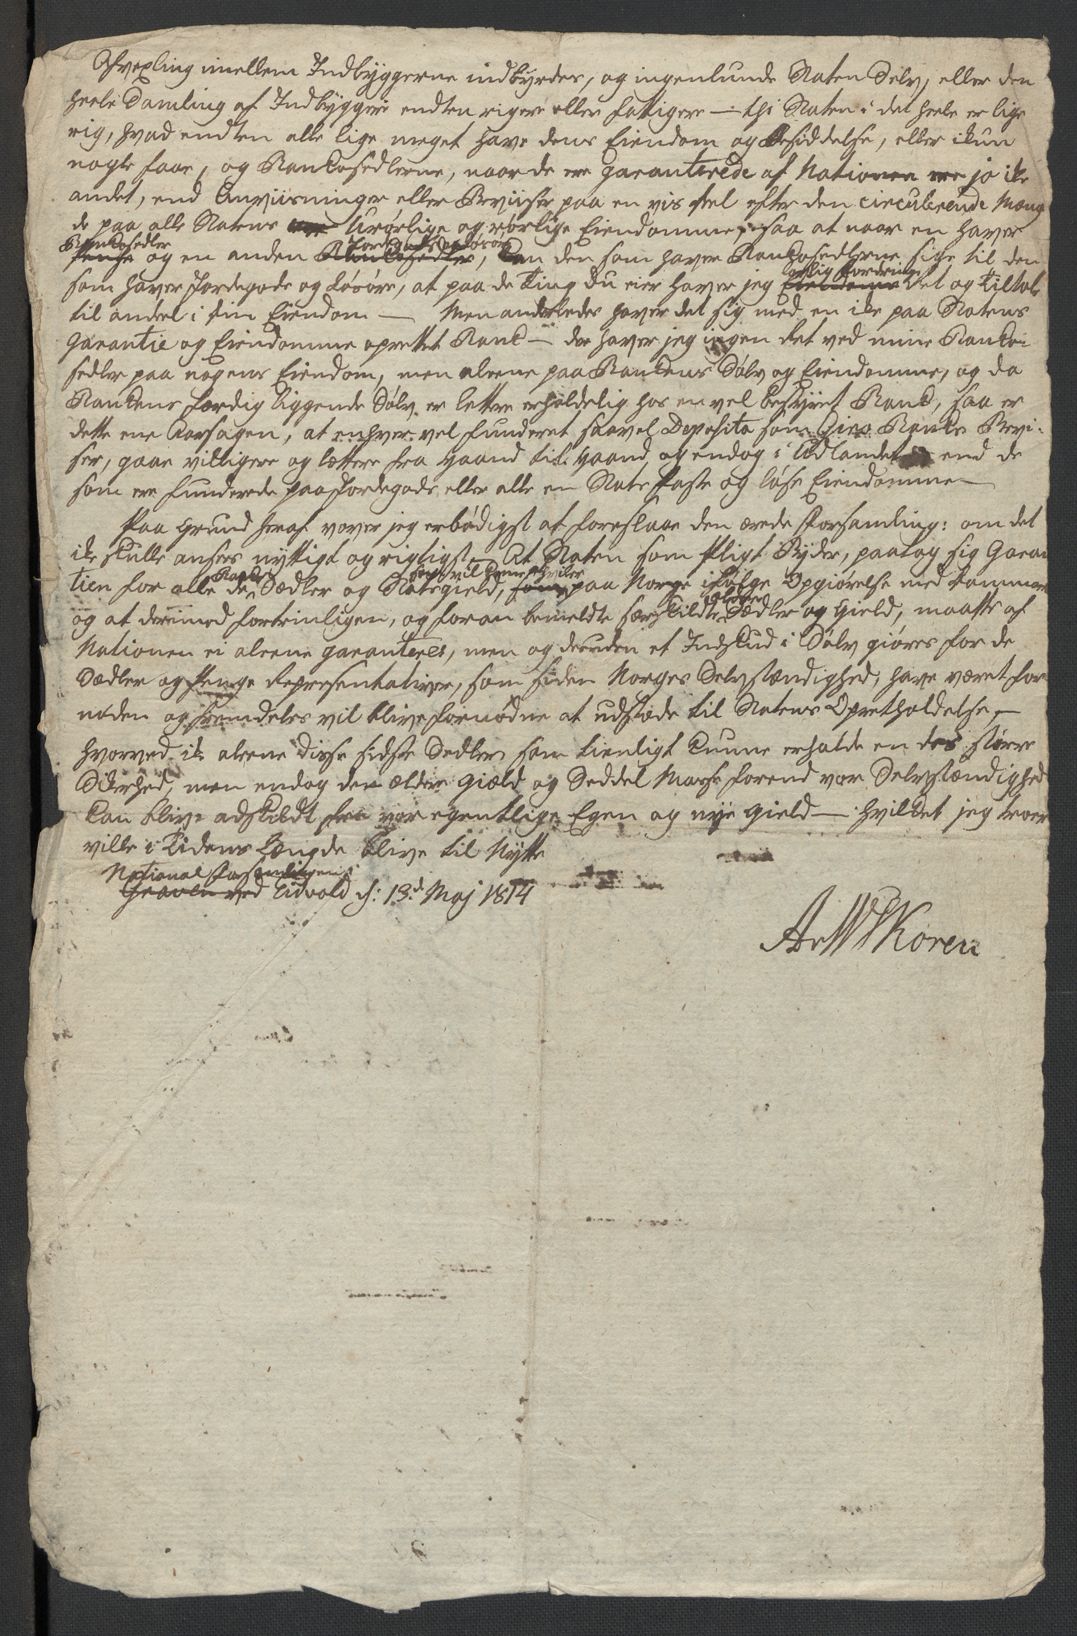 Omvexling imellem Indbyggerne indbyrdes, og ingenlunde Staten Selv, eller den
heele Samling af Indbyggere endten rigere eller fattigere — thi Staten i det heele er lige
rig, hvad endten alle lige meget have dens Eiendom og Besiddelse, eller ikun
nogle faae, og Bankosedlerne, naar de ere garanterede af Nationen ere jo ike
andet, end Anviisninger eller Beviiser paa en vis deel efter den circulerende Mæng
de paa alle Statens urørlige og rørlige Eiendomme, saa at naar en haver
Bankosedler
Penge og en anden Jordegods og Løsøre, kan den som haver Bankosedlerne sige til den
som haver Jordegods og Løsøre, at paa de Ting du eier haver jeg Fordring Ret og Tiltale
til andel i din Eiendom — Men anderledes haver det sig med en ike paa Statens
Garantie og Eiendomme oprettet Bank — der haver jeg ingen Ret ved mine Banko
sedler paa nogens Eiendom, men aleene paa Bankens Sølv og Eiendomme, og da
Bankens færdig liggende Sølv er lettere erholdelig hos en vel bestyret Bank, saa er
dette ene Aarsagen, at enhver vel funderet saavel Deposito som Giro Banks Bevi-
ser, gaae villigere og lættere fra Haand til Haand og endog i Udlandet end de
som ere funderede paa Jordegods eller alle en Stats faste og løse Eiendomme —
Paa Grund heraf vover jeg erbødigst at foreslaae den ærede Forsamling: om det
ik skulle ansees nyttigt og rigtigst, At Staten som Pligt byder, paatog sig Garan
tien for alle de Banko Sædler og Statsgield, som vil komme hviler paa Norge ifølge Opgiørelse med Danmark
og at derimod fortrinligen, og foran bemeldte særskildte Sædler og Gield, maatte af
Nationen ei aleene garanteres, men og desuden et Indskud i Sølv giøres for de
Sædler og Penge Repræsentativer, som siden Norges Selvstændighed, have været for
nøden og fremdeles vil blive fornødne at udstæde til Statens Opretholdelse, —
hvorved ik aleene disse sidste Sedler som tienligt kunne erholde en des større
Sikerhed, men endog den ældre Giæld og Seddel Masse forend vor Selvstændighed
kan blive adskildt fra vor egentlige Egen og nye Gield — hvilket jeg troer
ville i Tidens Længde blive til Nytte
National Forsamlingen i
Eidvold d: 13d Maj 1814
Ar W Koren